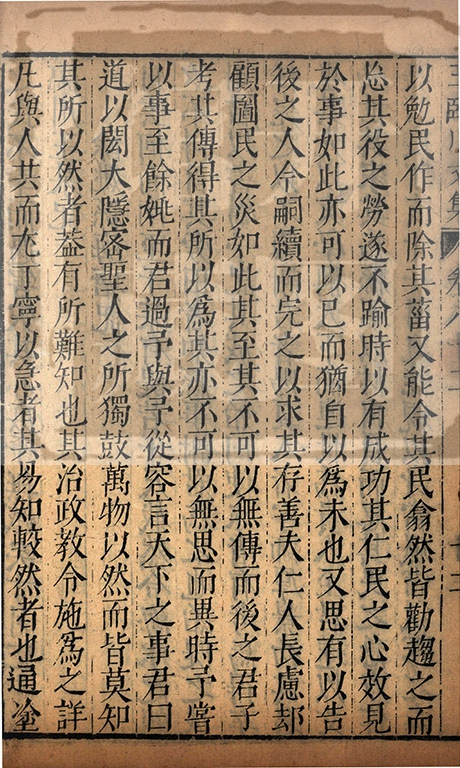 臨川文集 卷八十二
以勉民作而除其菑又能令其民翕然皆勸趨之而
忘其役之勞遂不踰時以有成功其仁民之心效見
於事如此亦可以已而猶自以為未也又思有以告
後之人令嗣續而完之以求其存善夫仁人長慮却
顧圖民之災如此其至其不可以無傳而後之君子
考其傳得其所以為其亦不可以無思而異時予嘗
以事至餘姚而君過予與予從容言天下之事君曰
道以閎大隱宻聖人之所獨鼓萬物以然而皆莫知
其所以然者葢有所難知也其治政教令施為之詳
凡與人共而尤丁寧以急者其易知較然者也通塗